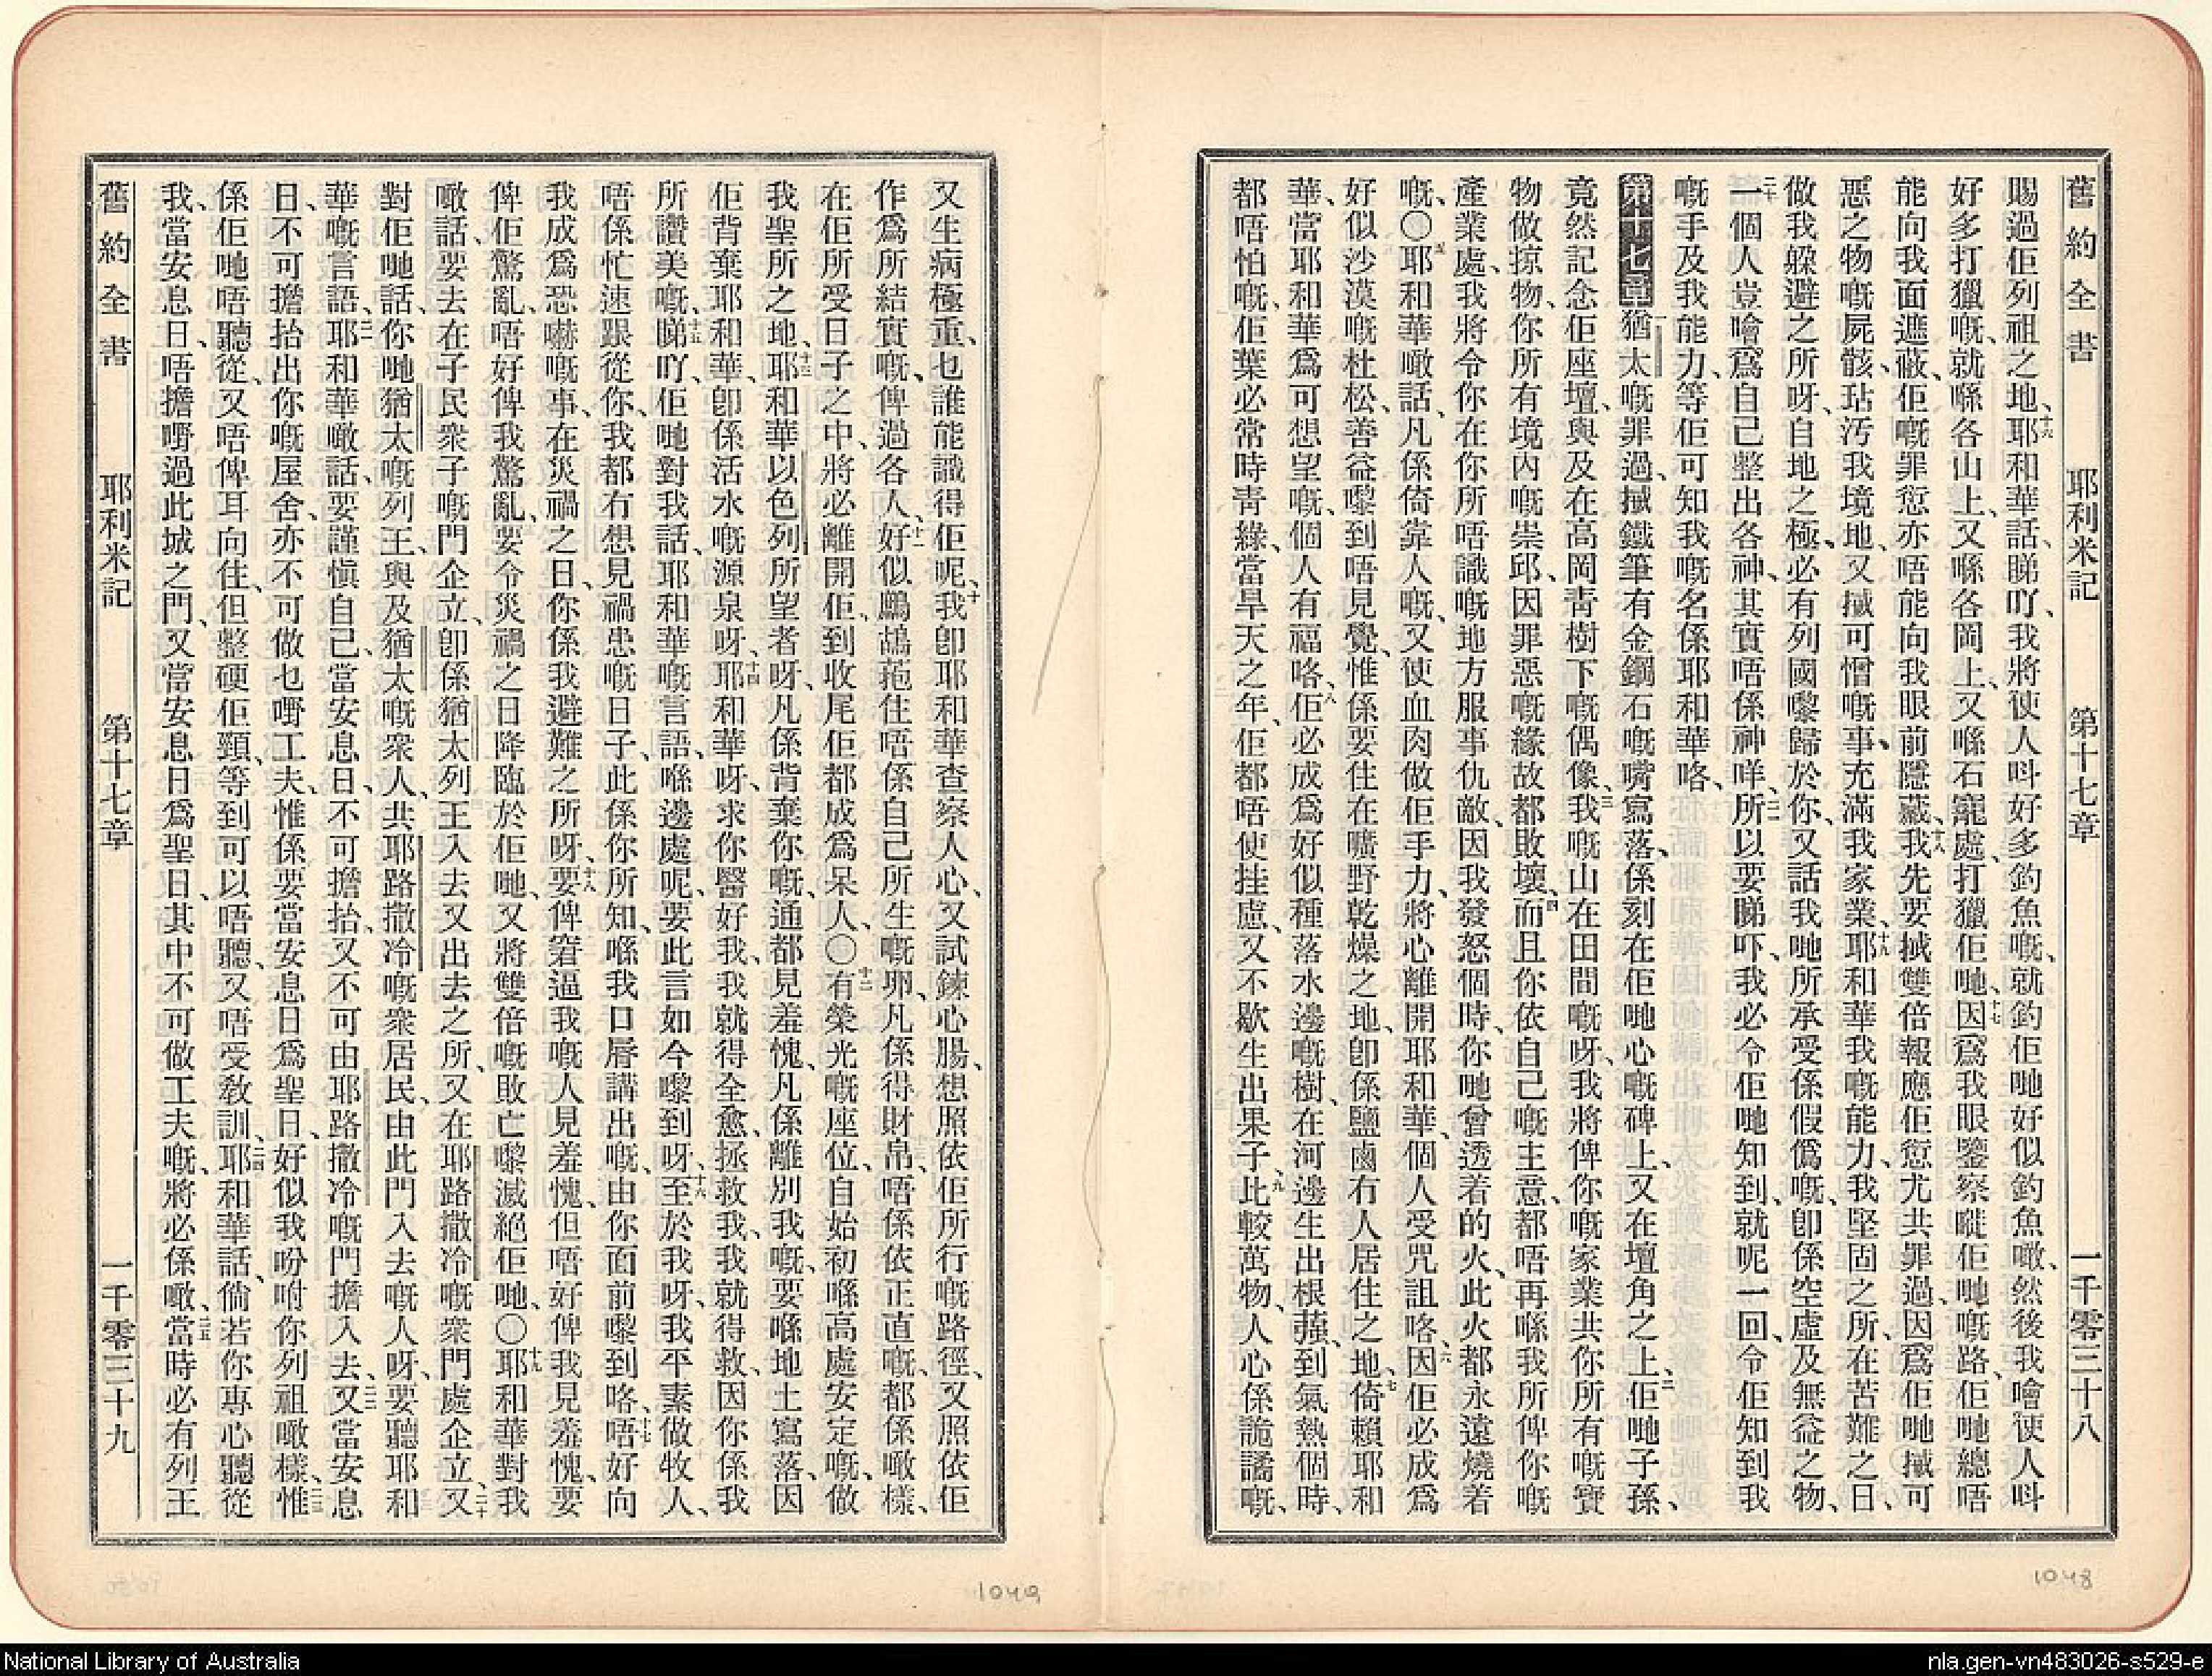 舊約全書 耶利米記 第十七章 一千零三十八
賜過佢列祖之地、十六耶和華話、睇吖、我將使人呌好多釣魚嘅、就釣佢哋好似釣魚噉、然後我噲使人呌
好多打獵嘅、就喺各山上、又喺各岡上、又喺石竉處、打獵佢哋、十七因爲我眼鑒察嗮佢哋嘅路、佢哋總唔
能向我面遮蔽、佢嘅罪愆亦唔能向我眼前隱藏、十八我先要搣雙倍報應佢愆尤共罪過、因爲佢哋搣可
惡之物嘅屍骸、玷汚我境地、又搣可憎嘅事、充滿我家業、十九耶和華我嘅能力、我堅固之所、在苦難之日、
做我躱避之所呀、自地之極、必有列國嚟歸於你、又話我哋所承受係假僞嘅、卽係空虛及無益之物、
二十一個人豈噲爲自己整出各神、其實唔係神咩、二一所以要睇吓、我必令佢哋知到、就呢一回、令佢知到我
嘅手及我能力、等佢可知我嘅名係耶和華咯、
第十七章 一猶太嘅罪過、搣鐵筆有金鋼石嘅嘴寫落、係刻在佢哋心嘅碑上、又在壇角之上、二佢哋子孫、
竟然記念佢座壇、與及在高岡靑樹下嘅偶像、三我嘅山在田間嘅呀、我將俾你嘅家業共你所有嘅寶
物做掠物、你所有境內嘅崇邱、因罪惡嘅緣故都敗壞、四而且你依自己嘅主意、都唔再喺我所俾你嘅
產業處、我將令你在你所唔識嘅地方服事仇敵、因我發怒個時、你哋曾透着的火、此火都永遠燒着
嘅、〇五耶和華噉話、凡係倚靠人嘅、又使血肉做佢手力、將心離開耶和華、個人受咒詛咯、六因佢必成爲
好似沙漠嘅杜松、善益嚟到唔見覺、惟係要住在曠野乾燥之地、卽係鹽鹵冇人居住之地、七倚賴耶和
華、當耶和華爲可想望嘅、個人有福咯、八佢必成爲好似種落水邊嘅樹、在河邊生出根蕵、到氣熱個時、
都唔怕嘅、佢葉必常時靑綠、當旱天之年、佢都唔使挂慮、又不歇生出果子、九此較萬物、人心係詭譎嘅、
又生病極重、乜誰能識得佢呢、十我卽耶和華查察人心、又試鍊心腸、想照依佢所行嘅路徑、又照依佢
作爲所結實嘅、俾過各人、十一好似鷓鴣菢住唔係自己所生嘅卵、凡係得財帛、唔係依正直嘅、都係噉樣、
在佢所受日子之中、將必離開佢、到收尾佢都成爲呆人、〇十二有榮光嘅座位、自始初喺高處安定嘅、做
我聖所之地、十三耶和華以色列所望者呀、凡係背棄你嘅、通都見羞愧、凡係離別我嘅、要喺地土寫落、因
佢背棄耶和華、卽係活水嘅源泉呀、十四耶和華呀、求你醫好我、我就得全愈、拯救我、我就得救、因你係我
所讚美嘅、十五睇吖、佢哋對我話、耶和華嘅言語、喺邊處呢、要此言如今嚟到呀、十六至於我呀、我平素做牧人、
唔係忙速跟從你、我都冇想見禍患嘅日子、此係你所知、喺我口唇講出嘅、由你面前嚟到咯、十七唔好向
我成爲恐嚇嘅事、在災禍之日、你係我避難之所呀、十八要俾窘逼我嘅人見羞愧、但唔好俾我見羞愧、要
俾佢驚亂、唔好俾我驚亂、要令災禍之日降臨於佢哋、又將雙倍嘅敗亡嚟滅絕佢哋、〇十九耶和華對我
噉話、要去在子民衆子嘅門企立、卽係猶太列王入去又出去之所、又在耶路撒冷嘅衆門處企立、二十又
對佢哋話、你哋猶太嘅列王、與及猶太嘅衆人、共耶路撒冷嘅衆居民、由此門入去嘅人呀、要聽耶和
華嘅言語、二一耶和華噉話、要謹愼自己、當安息日、不可擔抬、又不可由耶路撒冷嘅門擔入去、二二又當安息
日、不可擔抬出你嘅屋舍、亦不可做乜嘢工夫、惟係要當安息日爲聖日、好似我吩咐你列祖噉樣、二三惟
係佢哋唔聽從、又唔俾耳向住、但整硬佢頸、等到可以唔聽、又唔受敎訓、二四耶和華話、倘若你專心聽從
我、當安息日、唔擔嘢過此城之門、又當安息日爲聖日、其中不可做工夫嘅、將必係噉、二五當時必有列王
舊約全書 耶利米記 第十七章 一千零三十九
1049
1048
National Library of Australia
nla.gen-vn483026-s529-e